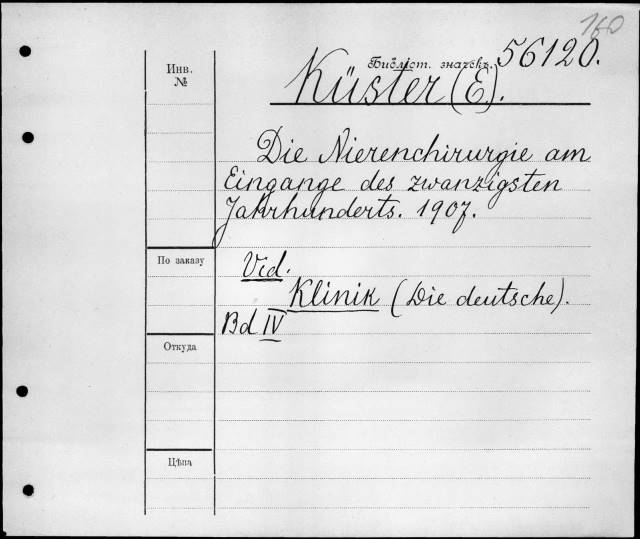 160
Библіот. значекъ. 56120.
Инв.
№
Küster (E).
Die Nierenchirurgie am
Eingange des zwanzigsten
Jahrhunderts. 1907.
По заказу
Vid.
Klinik (Die deutsche).
Bd IV
Откуда
Цѣна